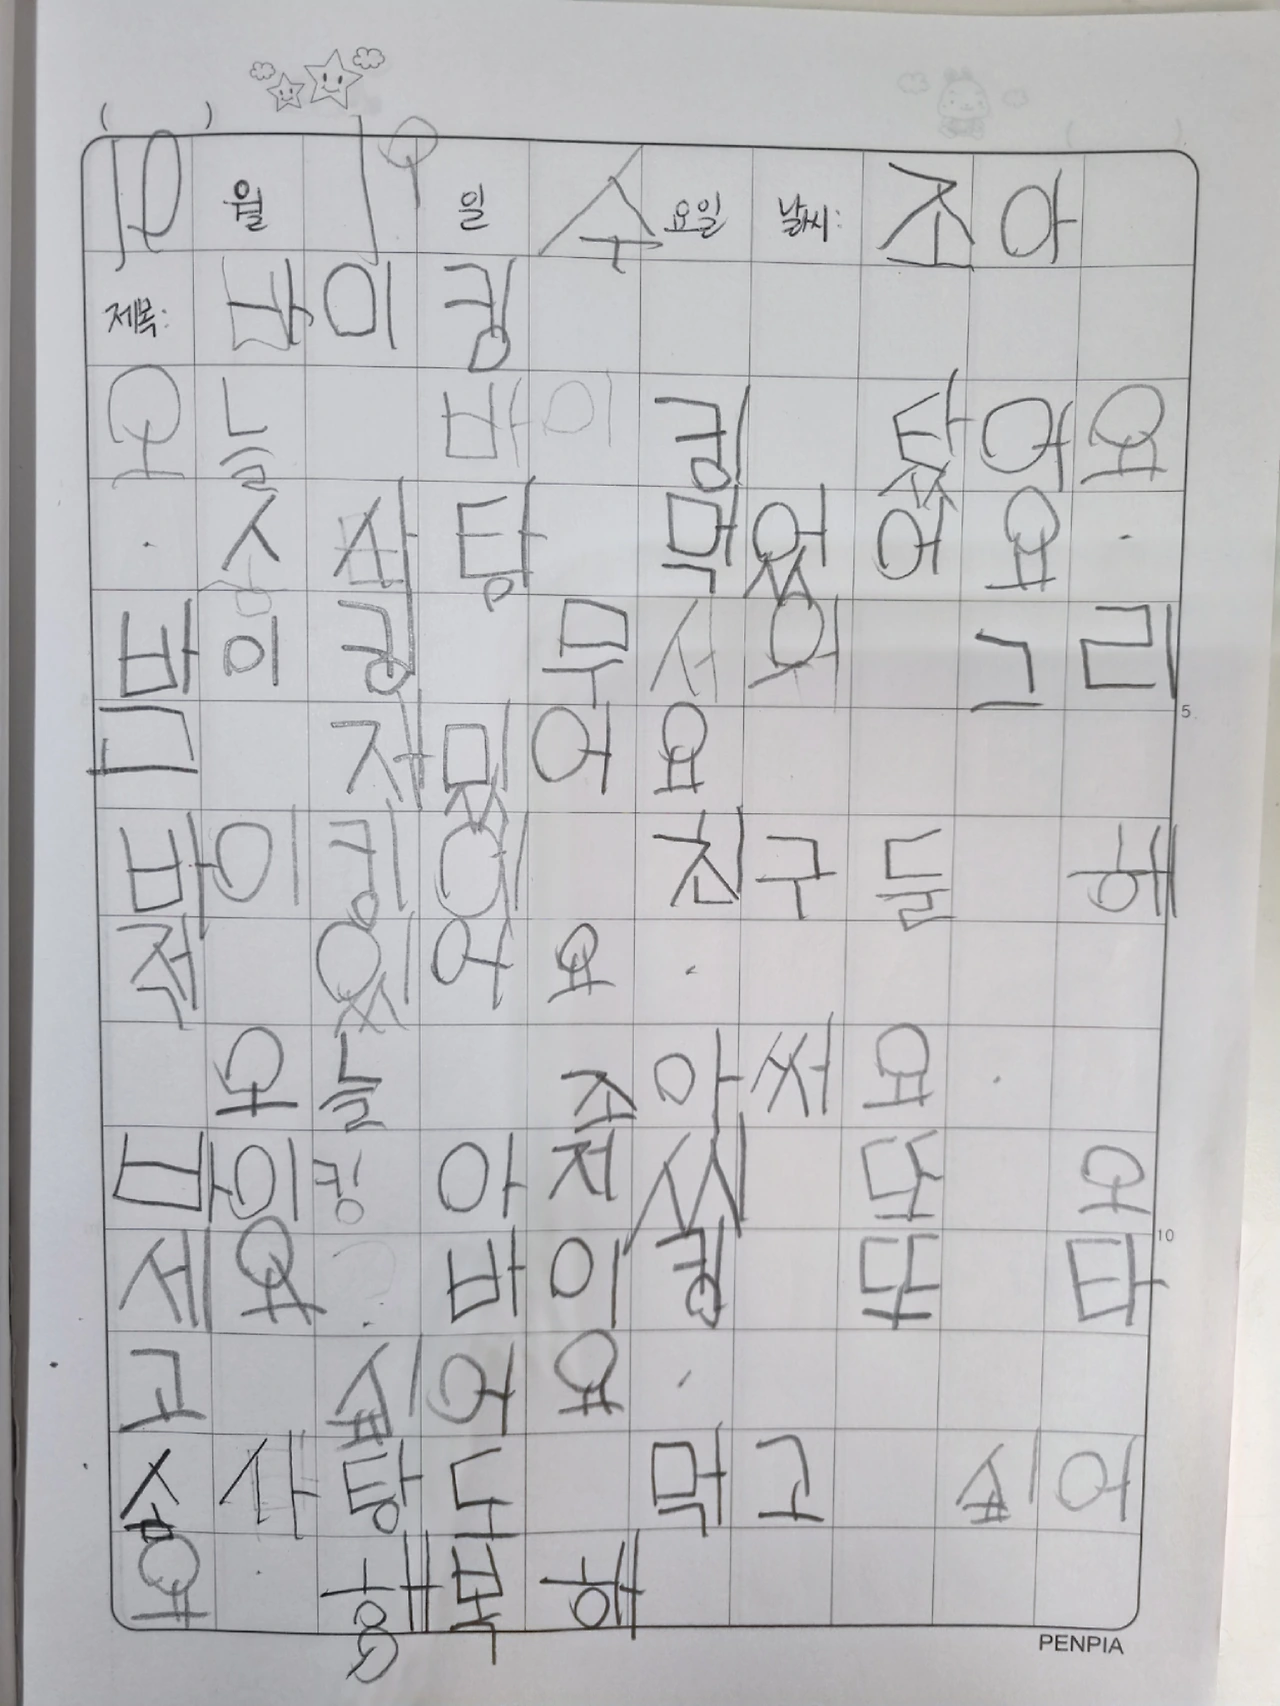 ( )
10 월 19 일 수 요일 날씨: 조아
제목: 바이킹
오늘 바이킹 탔어요
. 솜사탕 먹었어요.
바이킹 무서워 그리
고 자밌어요
바이킹이 친구들
적 있어요.
오늘 조아써요.
바이킹 아저씨 어
세요? 바이킹 타
고 싶어요.
솜사탕 먹고 싶어
요. 행복해
5
10
PENPIA